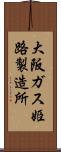 大阪ガス姫
路製造所